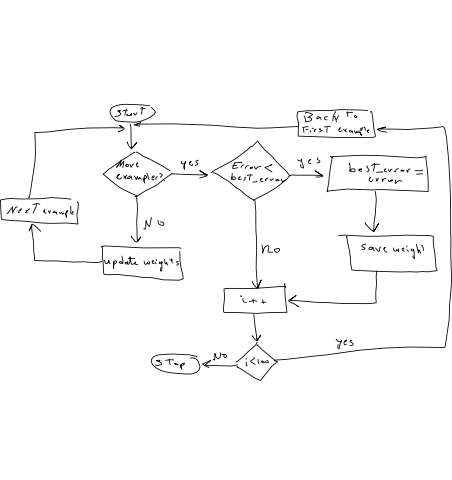 Start
Back to
First example
More
examples?
yes
Error <
best_error
yes
best_error =
error
Next example
No
update weights
no
save weight
i++
Stop
No
i<100
yes